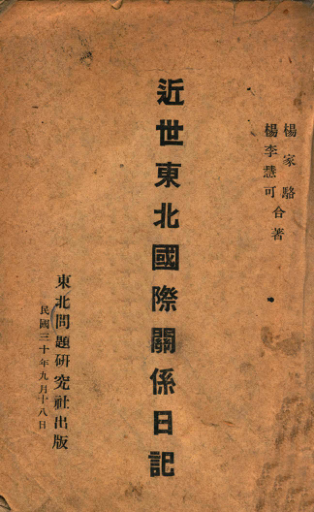 楊家駱
楊李慧可合著
近世東北國際關係日記
東北問題研究社出版
民國三十年九月十八日